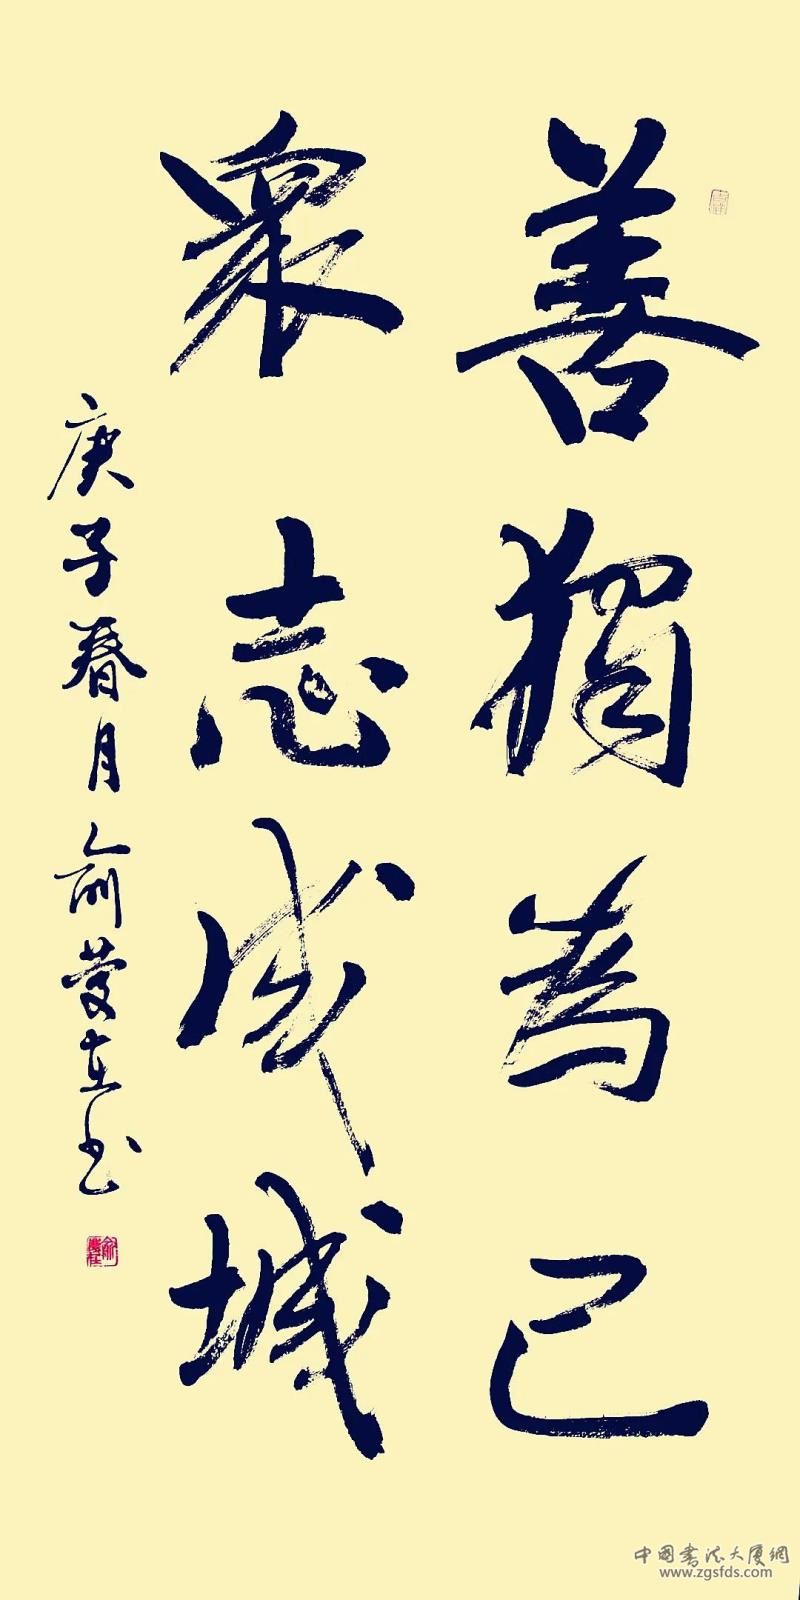 善獨為己
衆志成城
庚子春月俞慶在书
中國書法大厦網
www.zgsfds.com